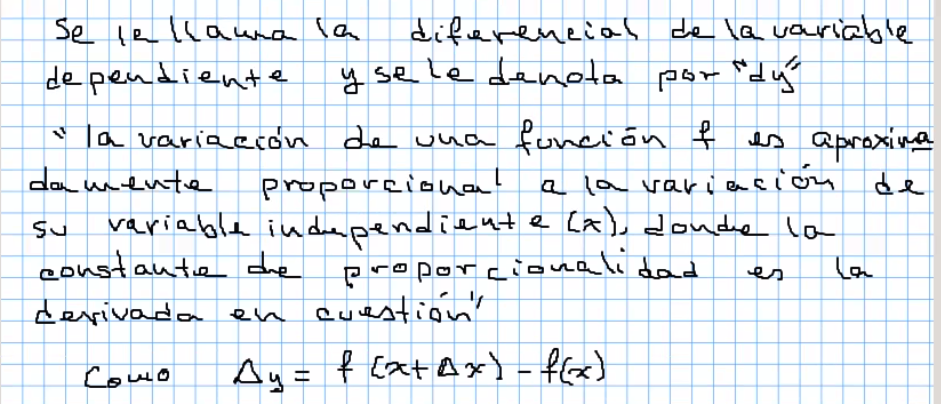 Se le llama la diferencial de la variable
dependiente y se le denota por "dy"
"la variación de una función f es aproxima
damente proporcional a la variación de
su variable independiente (x), donde la
constante de proporcionalidad es la
derivada en cuestión"
Como Δy = f(x+Δx) - f(x)